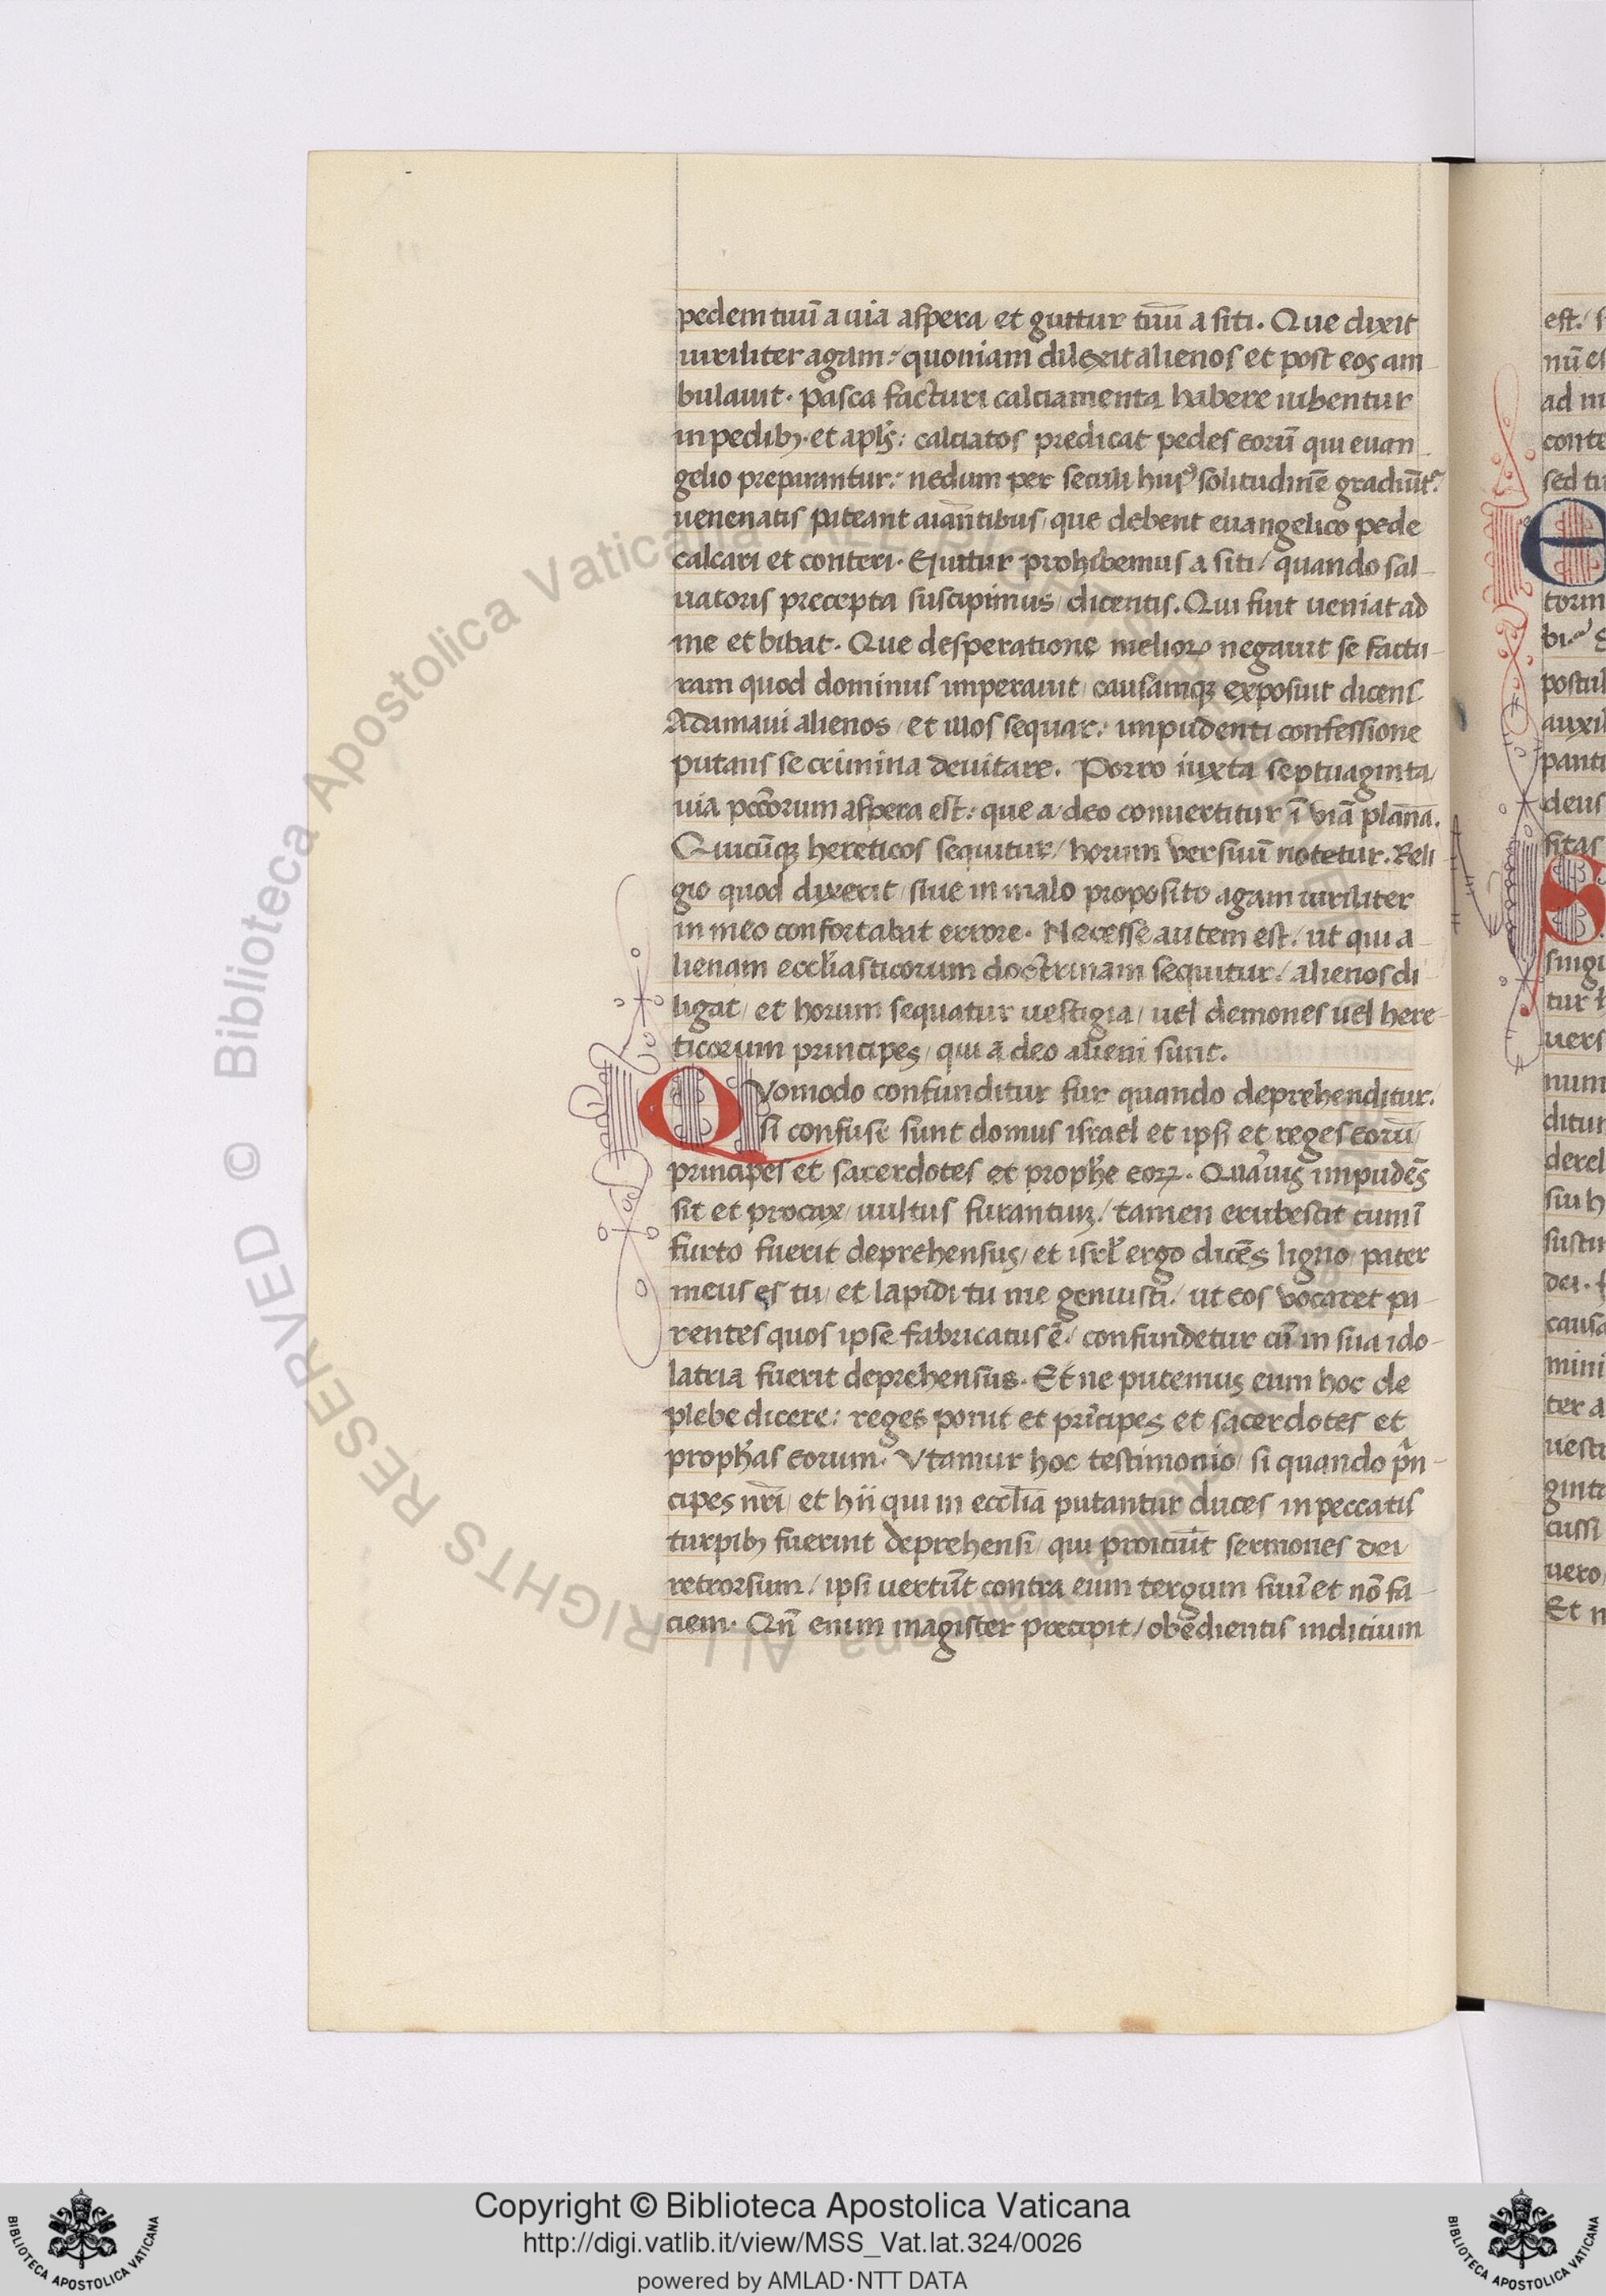 pedem tuū a uia aspera et guttur tuū a siti. Que dixit
uiriliter agam: quoniam dilexit alienos et post eos am
bulauit. Pasca facturi calciamenta habere iubentur
in pedibꝫ. et apl's: calciatos predicat pedes eorū qui euan
gelio preparantur: nedum per seculi huiꝰ solitudinē gradiūtr
uenenatis pateant aīantibus, que debent euangelico pede
calcari et conteri. Guttur prohibemus a siti/ quando sal
uatoris precepta suscipimus/ dicentis. Qui sitit ueniat ad
me et bibat. Que desperatione melioꝝ negauit se factu
ram quod dominus imperauit/ causamqꝫ exposuit dicens
Adamaui alienos/ et illos sequar: impudenti confessione
putans se crimina deuitare. Porro iuxta septuaginta/
uia pccōrum aspera est: que a deo conuertitur ī viā planā.
Quicūqꝫ hereticos sequitur/ horum versuū notetur. Reli
gio quod dixerit/ siue in malo proposito agam uiriliter
in meo confortabat errore. Necesse autem est/ ut qui a
lienam eccl'iasticorum doctrinam sequitur/ alienos di
ligat/ et horum sequatur uestigia/ uel demones uel here
ticorum principes/ qui a deo alieni sunt.
Qvomodo confunditur fur quando deprehenditur.
si confusi sunt domus israel et ipsi et reges eorū/
principes et sacerdotes et proph'e eoꝝ. Quāuis impudēs
sit et procax/ uultus furantium/ tamen erubescit cum ī
furto fuerit deprehensus/ et isrl' ergo dicēs ligno/ pater
meus es tu/ et lapidi tu me genuisti/ ut eos vocaret pa
rentes quos ipse fabricatus ē/ confundetur cū in sua ido
latria fuerit deprehensus. Et ne putemus eum hoc de
plebe dicere: reges ponit et prīcipes et sacerdotes et
proph'as eorum. Vtamur hoc testimonio/ si quando prī
cipes nr̄i/ et hii qui in eccl'ia putantur duces in peccatis
turpibꝫ fuerint deprehensi/ qui proiciūt sermones dei
retrorsum/ ipsi uertūt contra eum tergum suū et nō fa
ciem. Qn̄ enim magister precipit/ obedientis inditium
Copyright © Biblioteca Apostolica Vaticana
http://digi.vatlib.it/view/MSS_Vat.lat.324/0026
powered by AMLAD·NTT DATA